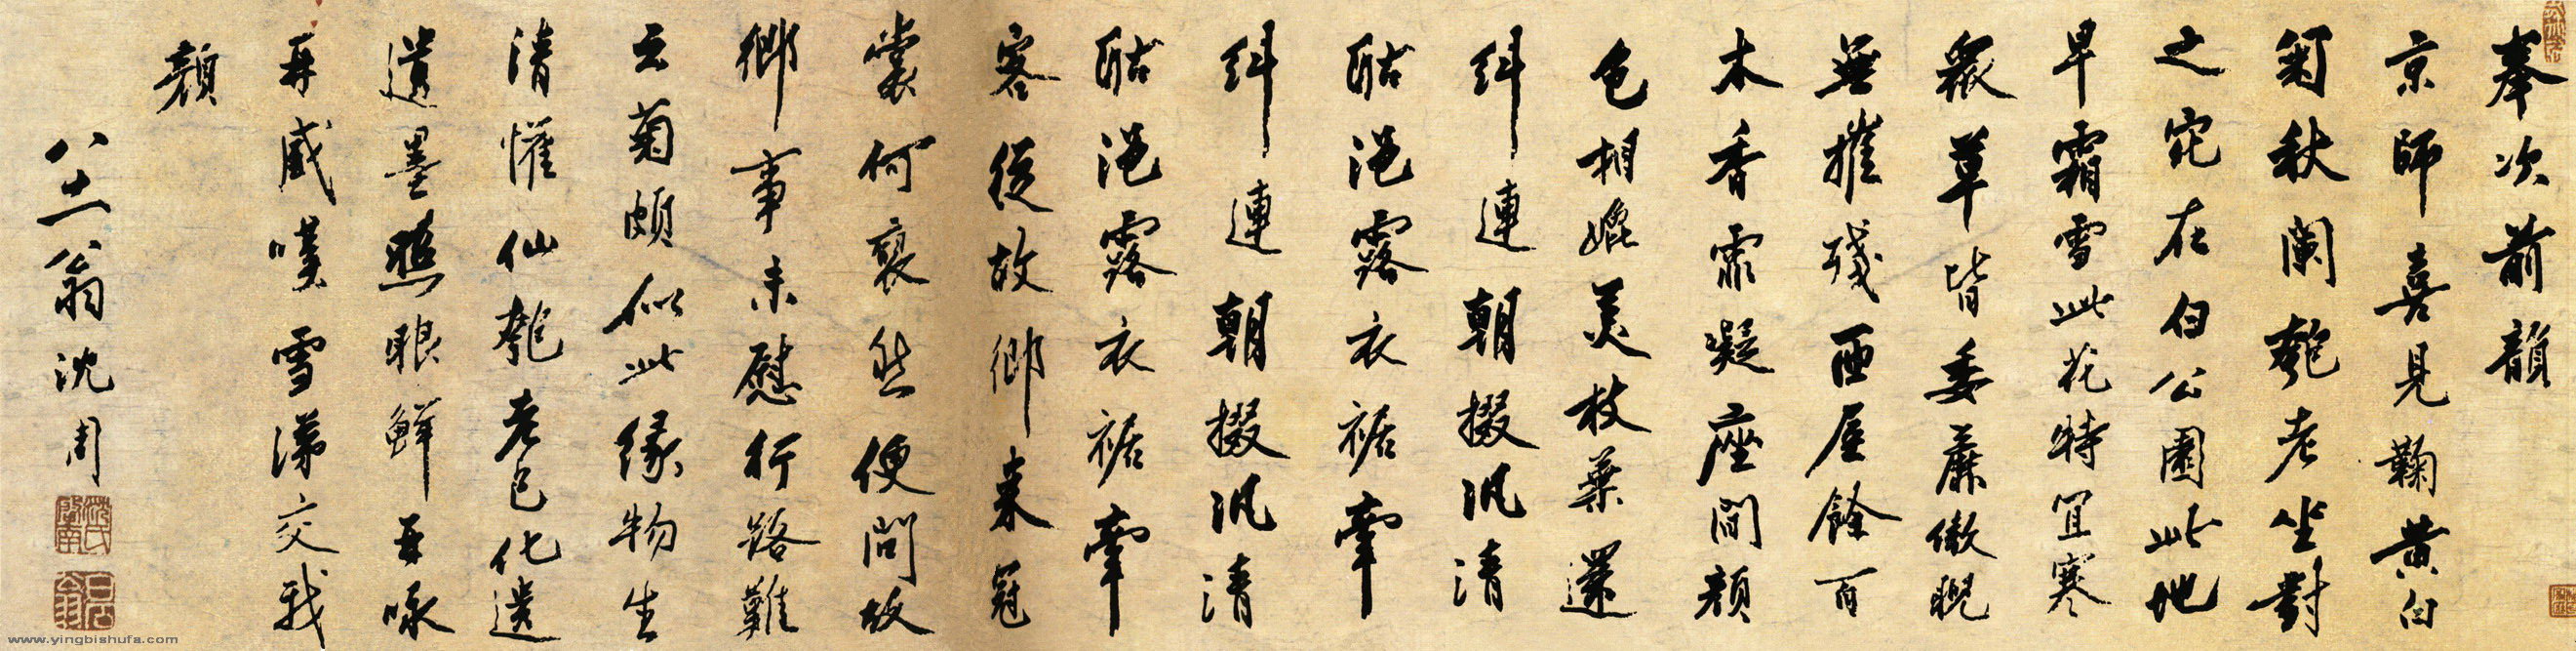 奉次前韻
京師喜見鞠黄白
匊秋闌匏老坐對
之宛在白公園此地
早霜雪此花特宜寒
衆草皆委靡傲睨
無摧殘西屋餘百
木香霏凝座間顔
色相媲美枝葉還
糾連朝掇汎清
酤浥露衣裾牽
糾連朝掇汎清
酤浥露衣裾牽
客從故鄉来冠
裳何褎然便問故
鄉事未慰行路難
云菊頗似此緣物生
清懽仙匏老已化遺
遺墨照眼鮮吾咏
再感嘆雪涕交我
顔
八十一翁沈周
沈氏啓南
白石翁
www.yingbishufa.com